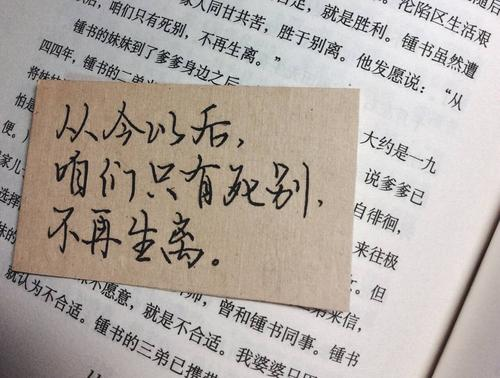 定，就是胜利。沦陷区生活艰
锺书虽然遭
家人同甘共苦，胜于别离。他发愿说：“从
后，咱们只有死别，不再生离。”
锺书的妹妹到了爹爹身边之后
大约是一九
四四年，锺书的二弟
说爹爹已
将妹妹
自徘徊，
怕是
来往极
便。
但
家儿
从今以后，
咱们只有死别，
不再生离。
选择
来信，
曾和锺书同事。锺书
妹的
不愿意，就是不合适。我婆婆只
就认为不合适。锺书的三弟已携